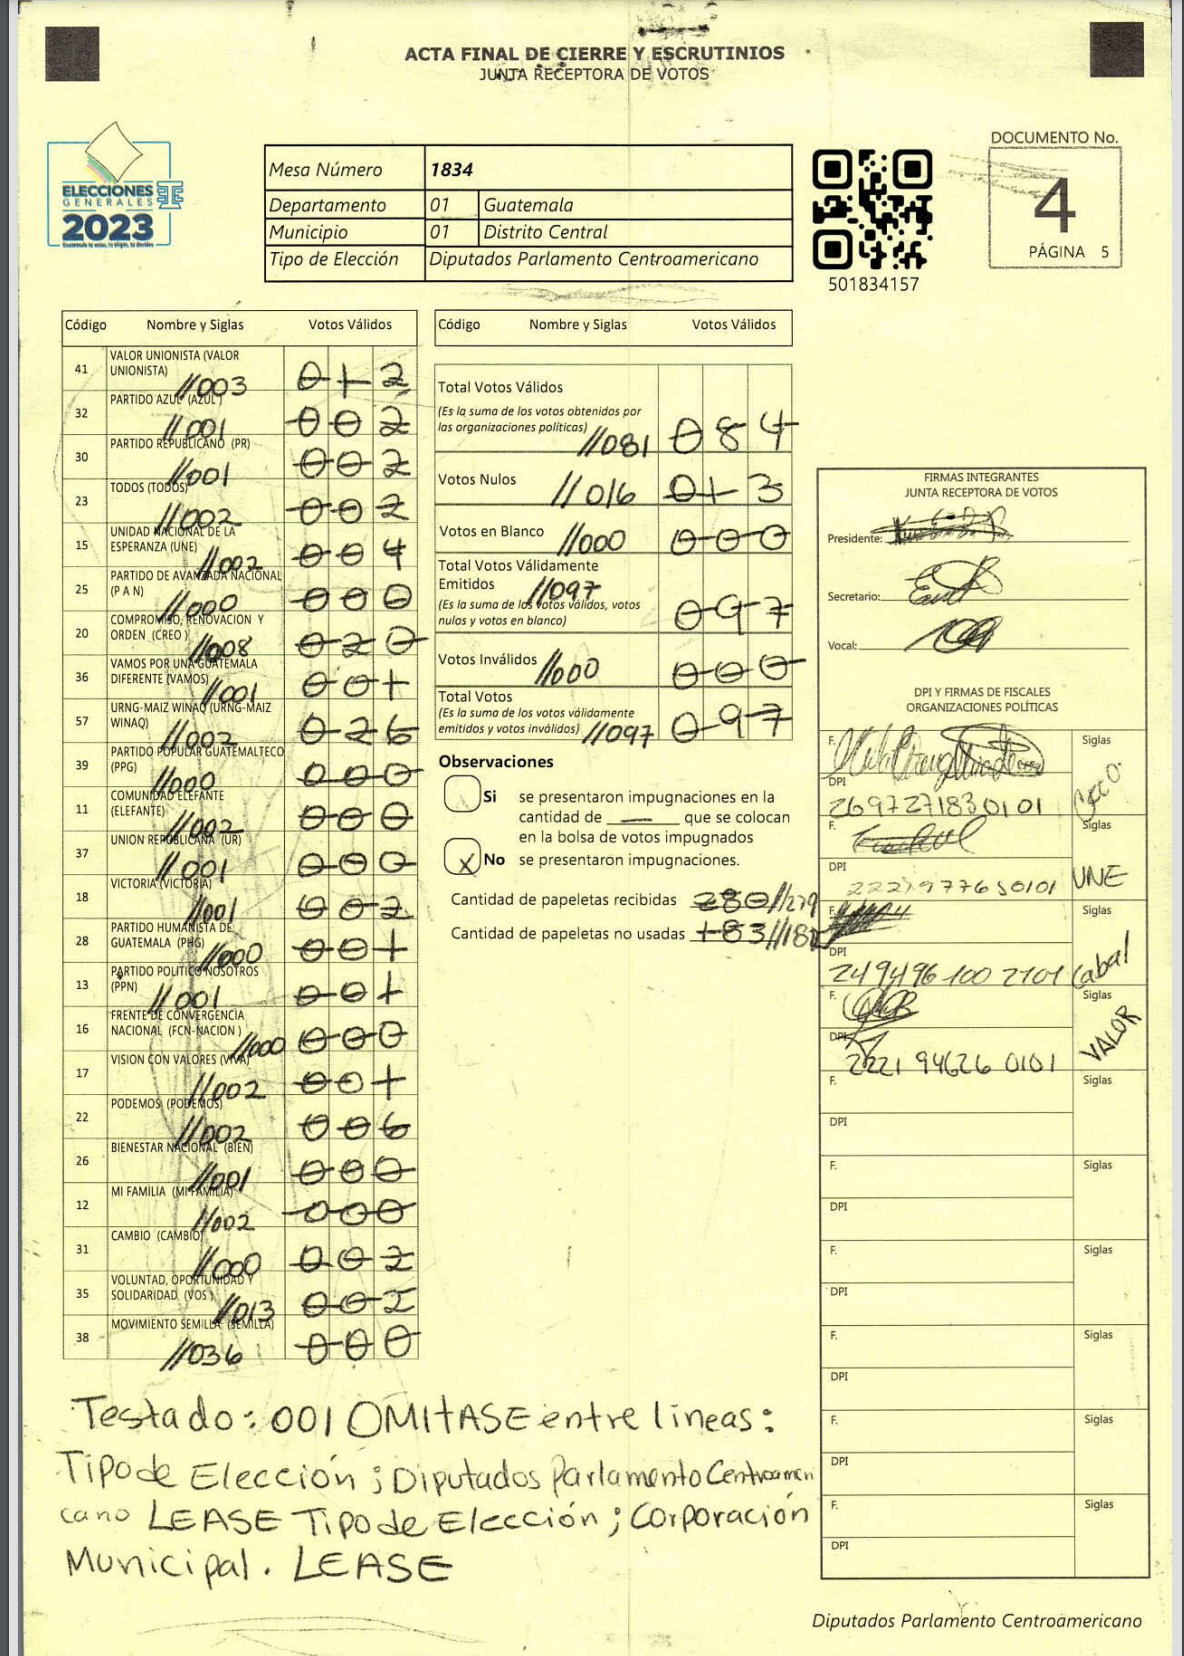 ACTA FINAL DE CIERRE Y ESCRUTINIOS
JUNTA RECEPTORA DE VOTOS
ELECCIONES
GENERALES
2023
Mesa Número 1834
Departamento 01 Guatemala
Municipio 01 Distrito Central
Tipo de Elección Diputados Parlamento Centroamericano
501834157
DOCUMENTO No.
4
PÁGINA 5
Código Nombre y Siglas Votos Válidos
41 VALOR UNIONISTA (VALOR
UNIONISTA) //003 012
32 PARTIDO AZUL (AZUL) //001 002
30 PARTIDO REPUBLICANO (PR) //001 002
23 TODOS (TODOS) //002 002
15 UNIDAD NACIONAL DE LA
ESPERANZA (UNE) //002 004
25 PARTIDO DE AVANZADA NACIONAL
(P A N) //000 000
20 COMPROMISO, RENOVACION Y
ORDEN (CREO) //008 020
36 VAMOS POR UNA GUATEMALA
DIFERENTE (VAMOS) //001 001
57 URNG-MAIZ WINAQ (URNG-MAIZ
WINAQ) //002 026
39 PARTIDO POPULAR GUATEMALTECO
(PPG) //000 000
11 COMUNIDAD ELEFANTE
(ELEFANTE) //002 000
37 UNION REPUBLICANA (UR) //001 000
18 VICTORIA (VICTORIA) //001 002
28 PARTIDO HUMANISTA DE
GUATEMALA (PHG) //000 001
13 PARTIDO POLITICO NOSOTROS
(PPN) //001 001
16 FRENTE DE CONVERGENCIA
NACIONAL (FCN-NACION ) //000 000
17 VISION CON VALORES (VIVA) //002 001
22 PODEMOS (PODEMOS) //002 006
26 BIENESTAR NACIONAL (BIEN) //001 000
12 MI FAMILIA (MI FAMILIA) //002 000
31 CAMBIO (CAMBIO) //000 002
35 VOLUNTAD, OPORTUNIDAD Y
SOLIDARIDAD (VOS) //013 002
38 MOVIMIENTO SEMILLA (SEMILLA)
//036 000
Código Nombre y Siglas Votos Válidos
Total Votos Válidos
(Es la suma de los votos obtenidos por
las organizaciones políticas) //081 084
Votos Nulos //016 013
Votos en Blanco //000 000
Total Votos Válidamente
Emitidos //097
(Es la suma de los votos válidos, votos
nulos y votos en blanco) 097
Votos Inválidos //000 000
Total Votos
(Es la suma de los votos válidamente
emitidos y votos inválidos) //097 097
Observaciones
Si se presentaron impugnaciones en la
cantidad de que se colocan
en la bolsa de votos impugnados
X No se presentaron impugnaciones.
Cantidad de papeletas recibidas 280//279
Cantidad de papeletas no usadas 183//182
FIRMAS INTEGRANTES
JUNTA RECEPTORA DE VOTOS
Presidente:
Secretario:
Vocal:
DPI Y FIRMAS DE FISCALES
ORGANIZACIONES POLÍTICAS
F. Siglas
DPI
2697271830101
F. Siglas
DPI UNE
2221977650101
F. Siglas
DPI Cabal
2494961002101
F. Siglas
DPI VALOR
2221 94626 0101
F. Siglas
DPI
F. Siglas
DPI
F. Siglas
DPI
F. Siglas
DPI
F. Siglas
DPI
F. Siglas
DPI
Testado: 001 OMITASE entre lineas:
Tipo de Elección; Diputados Parlamento Centroameri
cano LEASE Tipo de Elección; Corporación
Municipal. LEASE
Diputados Parlamento Centroamericano